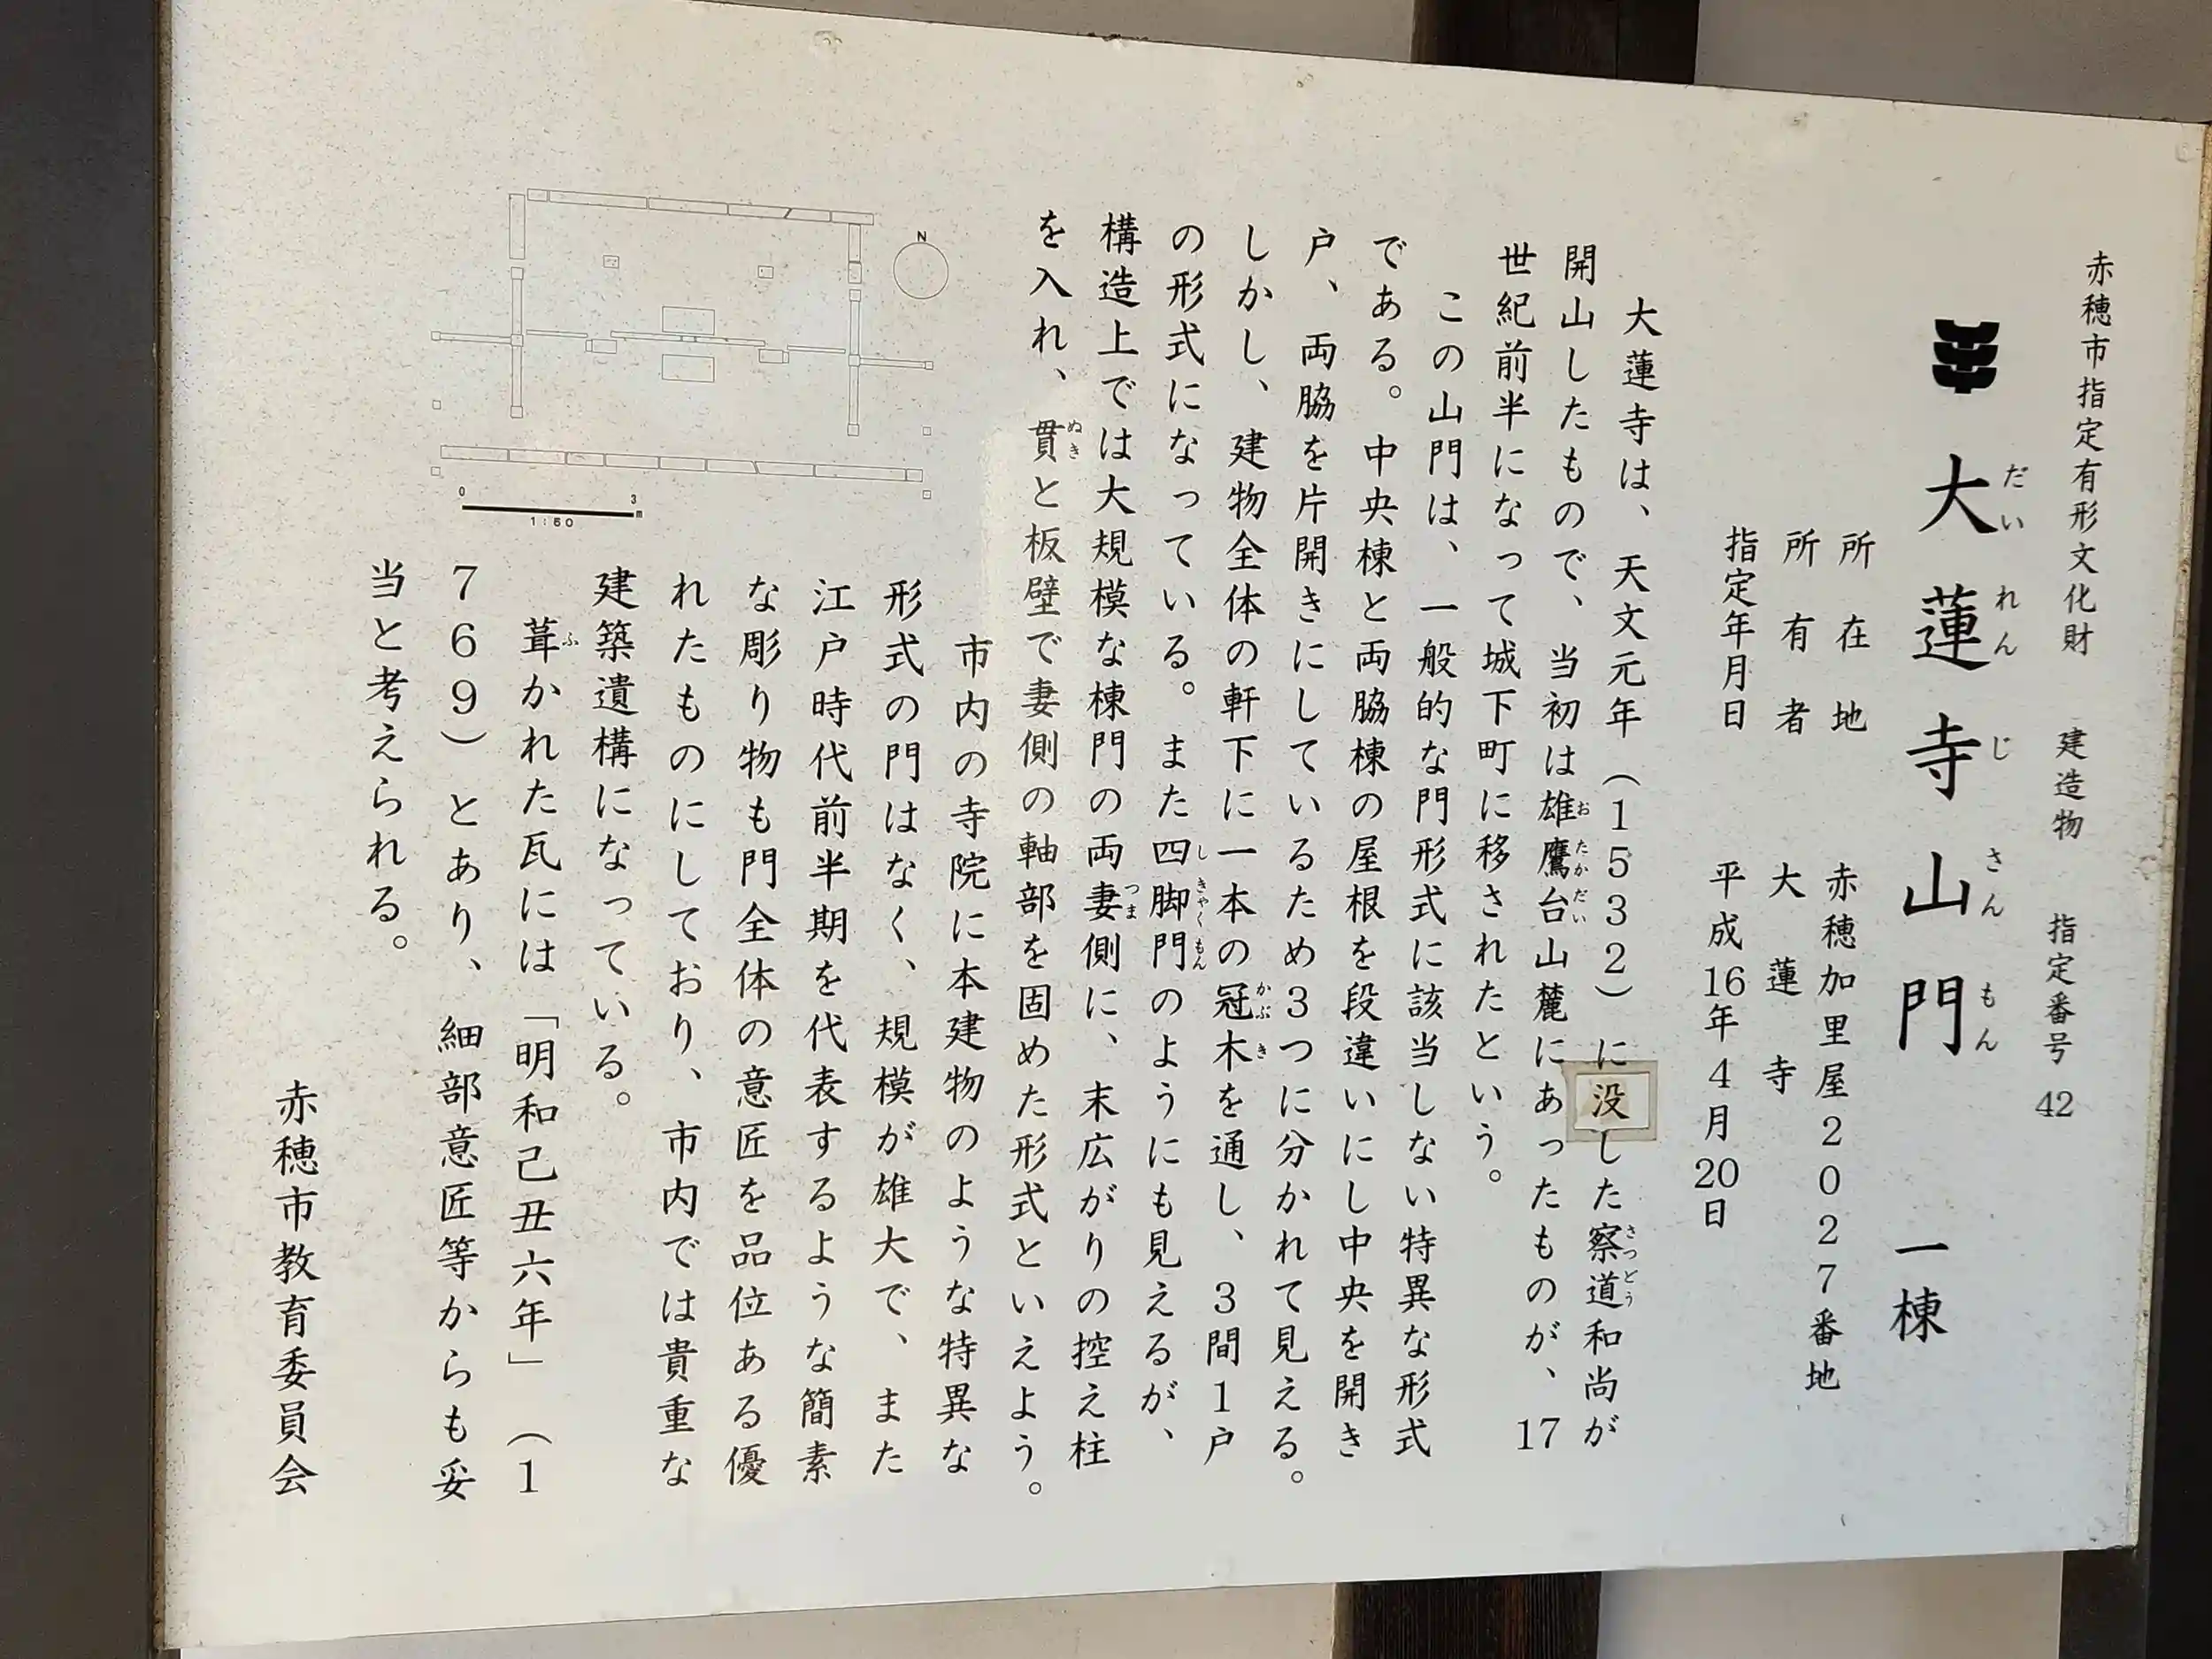 赤穂市指定有形文化財 建造物 指定番号 42
大蓮寺山門 一棟
だいれんじさんもん
所在地 赤穂加里屋2027番地
所有者 大蓮寺
指定年月日 平成16年4月20日
大蓮寺は、天文元年(1532)に没した察道和尚が
さつどう
開山したもので、当初は雄鷹台山麓にあったものが、17
おたかだい
世紀前半になって城下町に移されたという。
この山門は、一般的な門形式に該当しない特異な形式
である。中央棟と両脇棟の屋根を段違いにし中央を開き
戸、両脇を片開きにしているため3つに分かれて見える。
しかし、建物全体の軒下に一本の冠木を通し、3間1戸
かぶき
の形式になっている。また四脚門のようにも見えるが、
しきゃくもん
構造上では大規模な棟門の両妻側に、末広がりの控え柱
つま
を入れ、貫と板壁で妻側の軸部を固めた形式といえよう。
ぬき
市内の寺院に本建物のような特異な
形式の門はなく、規模が雄大で、また
江戸時代前半期を代表するような簡素
な彫り物も門全体の意匠を品位ある優
れたものにしており、市内では貴重な
建築遺構になっている。
葺かれた瓦には「明和己丑六年」(1
ふ
769)とあり、細部意匠等からも妥
当と考えられる。
赤穂市教育委員会
N
0 3
m
1:60